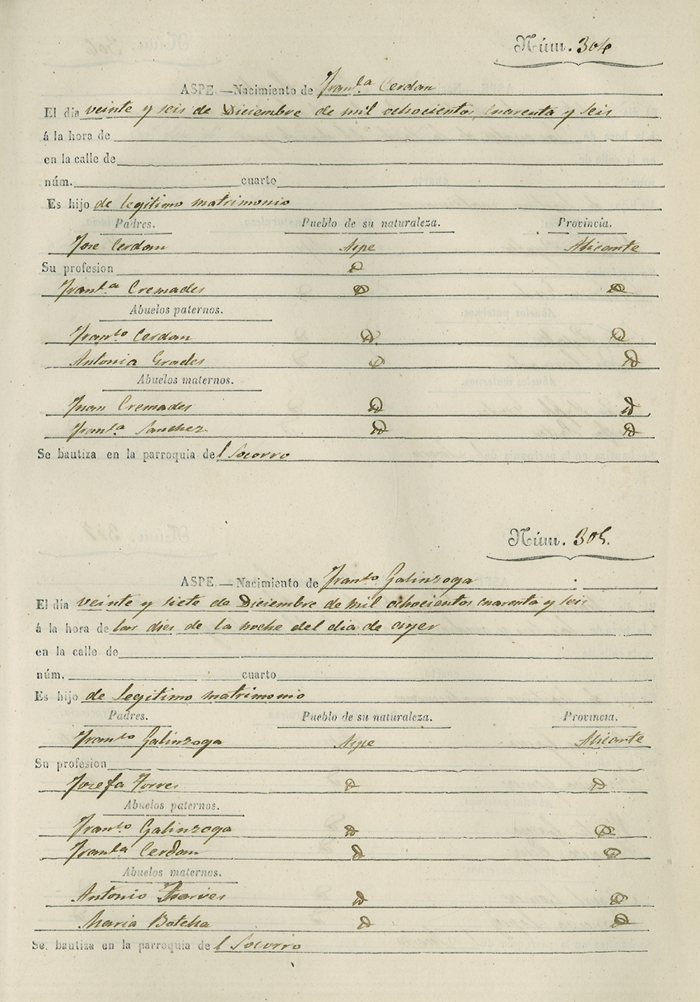 Núm. 304
ASPE.—Nacimiento de Franca Cerdan
El dia veinte y seis de Diciembre de mil ochocientos cuarenta y seis
á la hora de
en la calle de
núm. cuarto
Es hijo de legitimo matrimonio
Padres. Pueblo de su naturaleza. Provincia.
Jose Cerdan Aspe Alicante
Su profesion D
Franca Cremades D D
Abuelos paternos.
Franco Cerdan D D
Antonia Grades D D
Abuelos maternos.
Juan Cremades D D
Franca Sanchez D D
Se bautiza en la parroquia del Socorro
Núm. 305.
ASPE.—Nacimiento de Franco Galinsoga
El dia veinte y siete de Diciembre de mil ochocientos cuarenta y seis
á la hora de las dies de la noche del dia de ayer
en la calle de
núm. cuarto
Es hijo de legitimo matrimonio
Padres. Pueblo de su naturaleza. Provincia.
Franco Galinsoga Aspe Alicante
Su profesion
Josefa Torres D D
Abuelos paternos.
Franco Galinsoga D D
Franca Cerdan D D
Abuelos maternos.
Antonio D D
Maria Botella D D
Se bautiza en la parroquia del Socorro